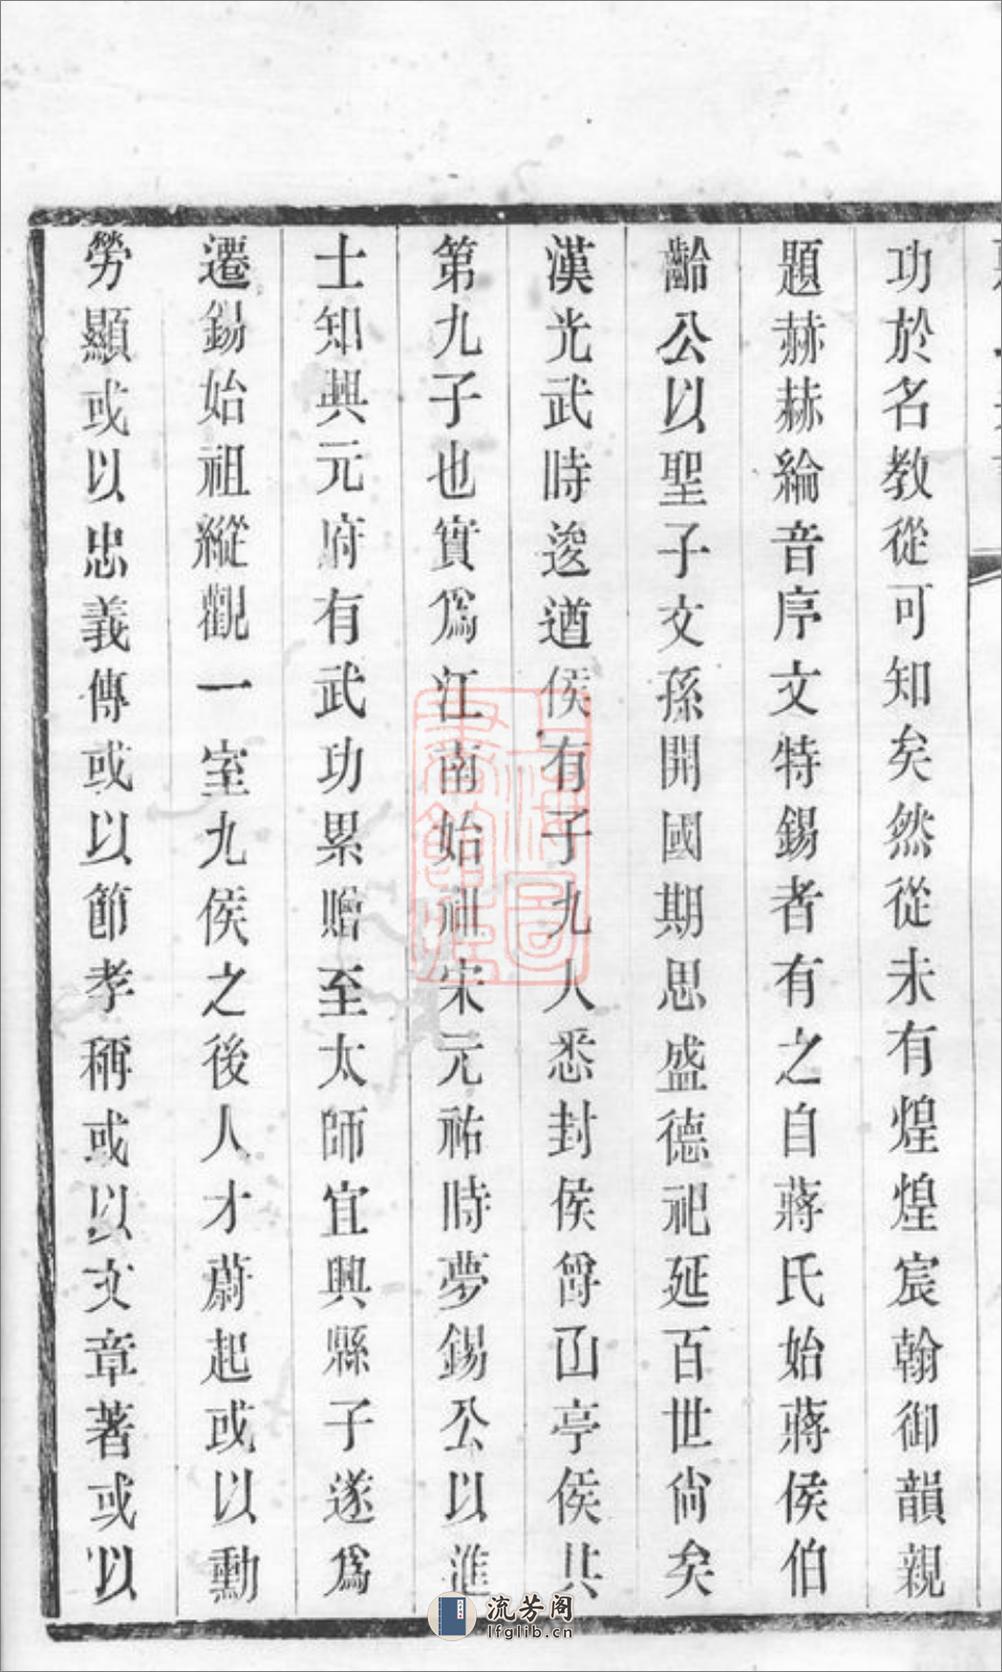 功於名教從可知矣然從未有煌煌宸翰御韻親
題赫赫綸音序文特錫者有之自蔣氏始蔣侯伯
齡公以聖子文孫開國期思盛德祀延百世尚矣
漢光武時逡遒侯有子九人悉封侯曾山亭侯共
第九子也實爲江南始祖宋元祐時夢錫公以進
士知興元府有武功累贈至太師宜興縣子遂爲
遷錫始祖縱觀一室九侯之後人才蔚起或以勳
勞顯或以忠義傳或以節孝稱或以文章著或以
上海圖書館藏
流芳阁
lfglib.cn